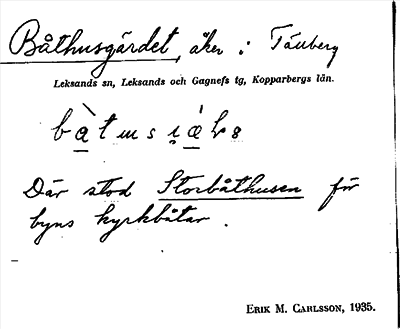 Båthusgärdet, åker i Täuberg
Leksands sn, Leksands och Gagnefs tg, Kopparbergs län.
Där stod Storbåthusen för
byns kyrkbåtar.
ERIK M. CARLSSON, 1935.